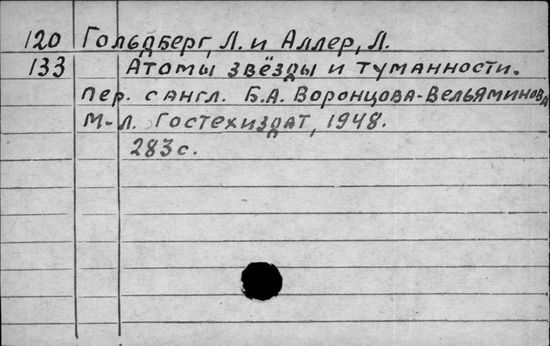 120 Гольдберг, Л. и Аллер, Л.
133 Атомы звёзды и туманности.
пер. с англ. Б.А. Воронцова-Вельяминова
М-Л. Гостехиздат, 1948.
283 с.